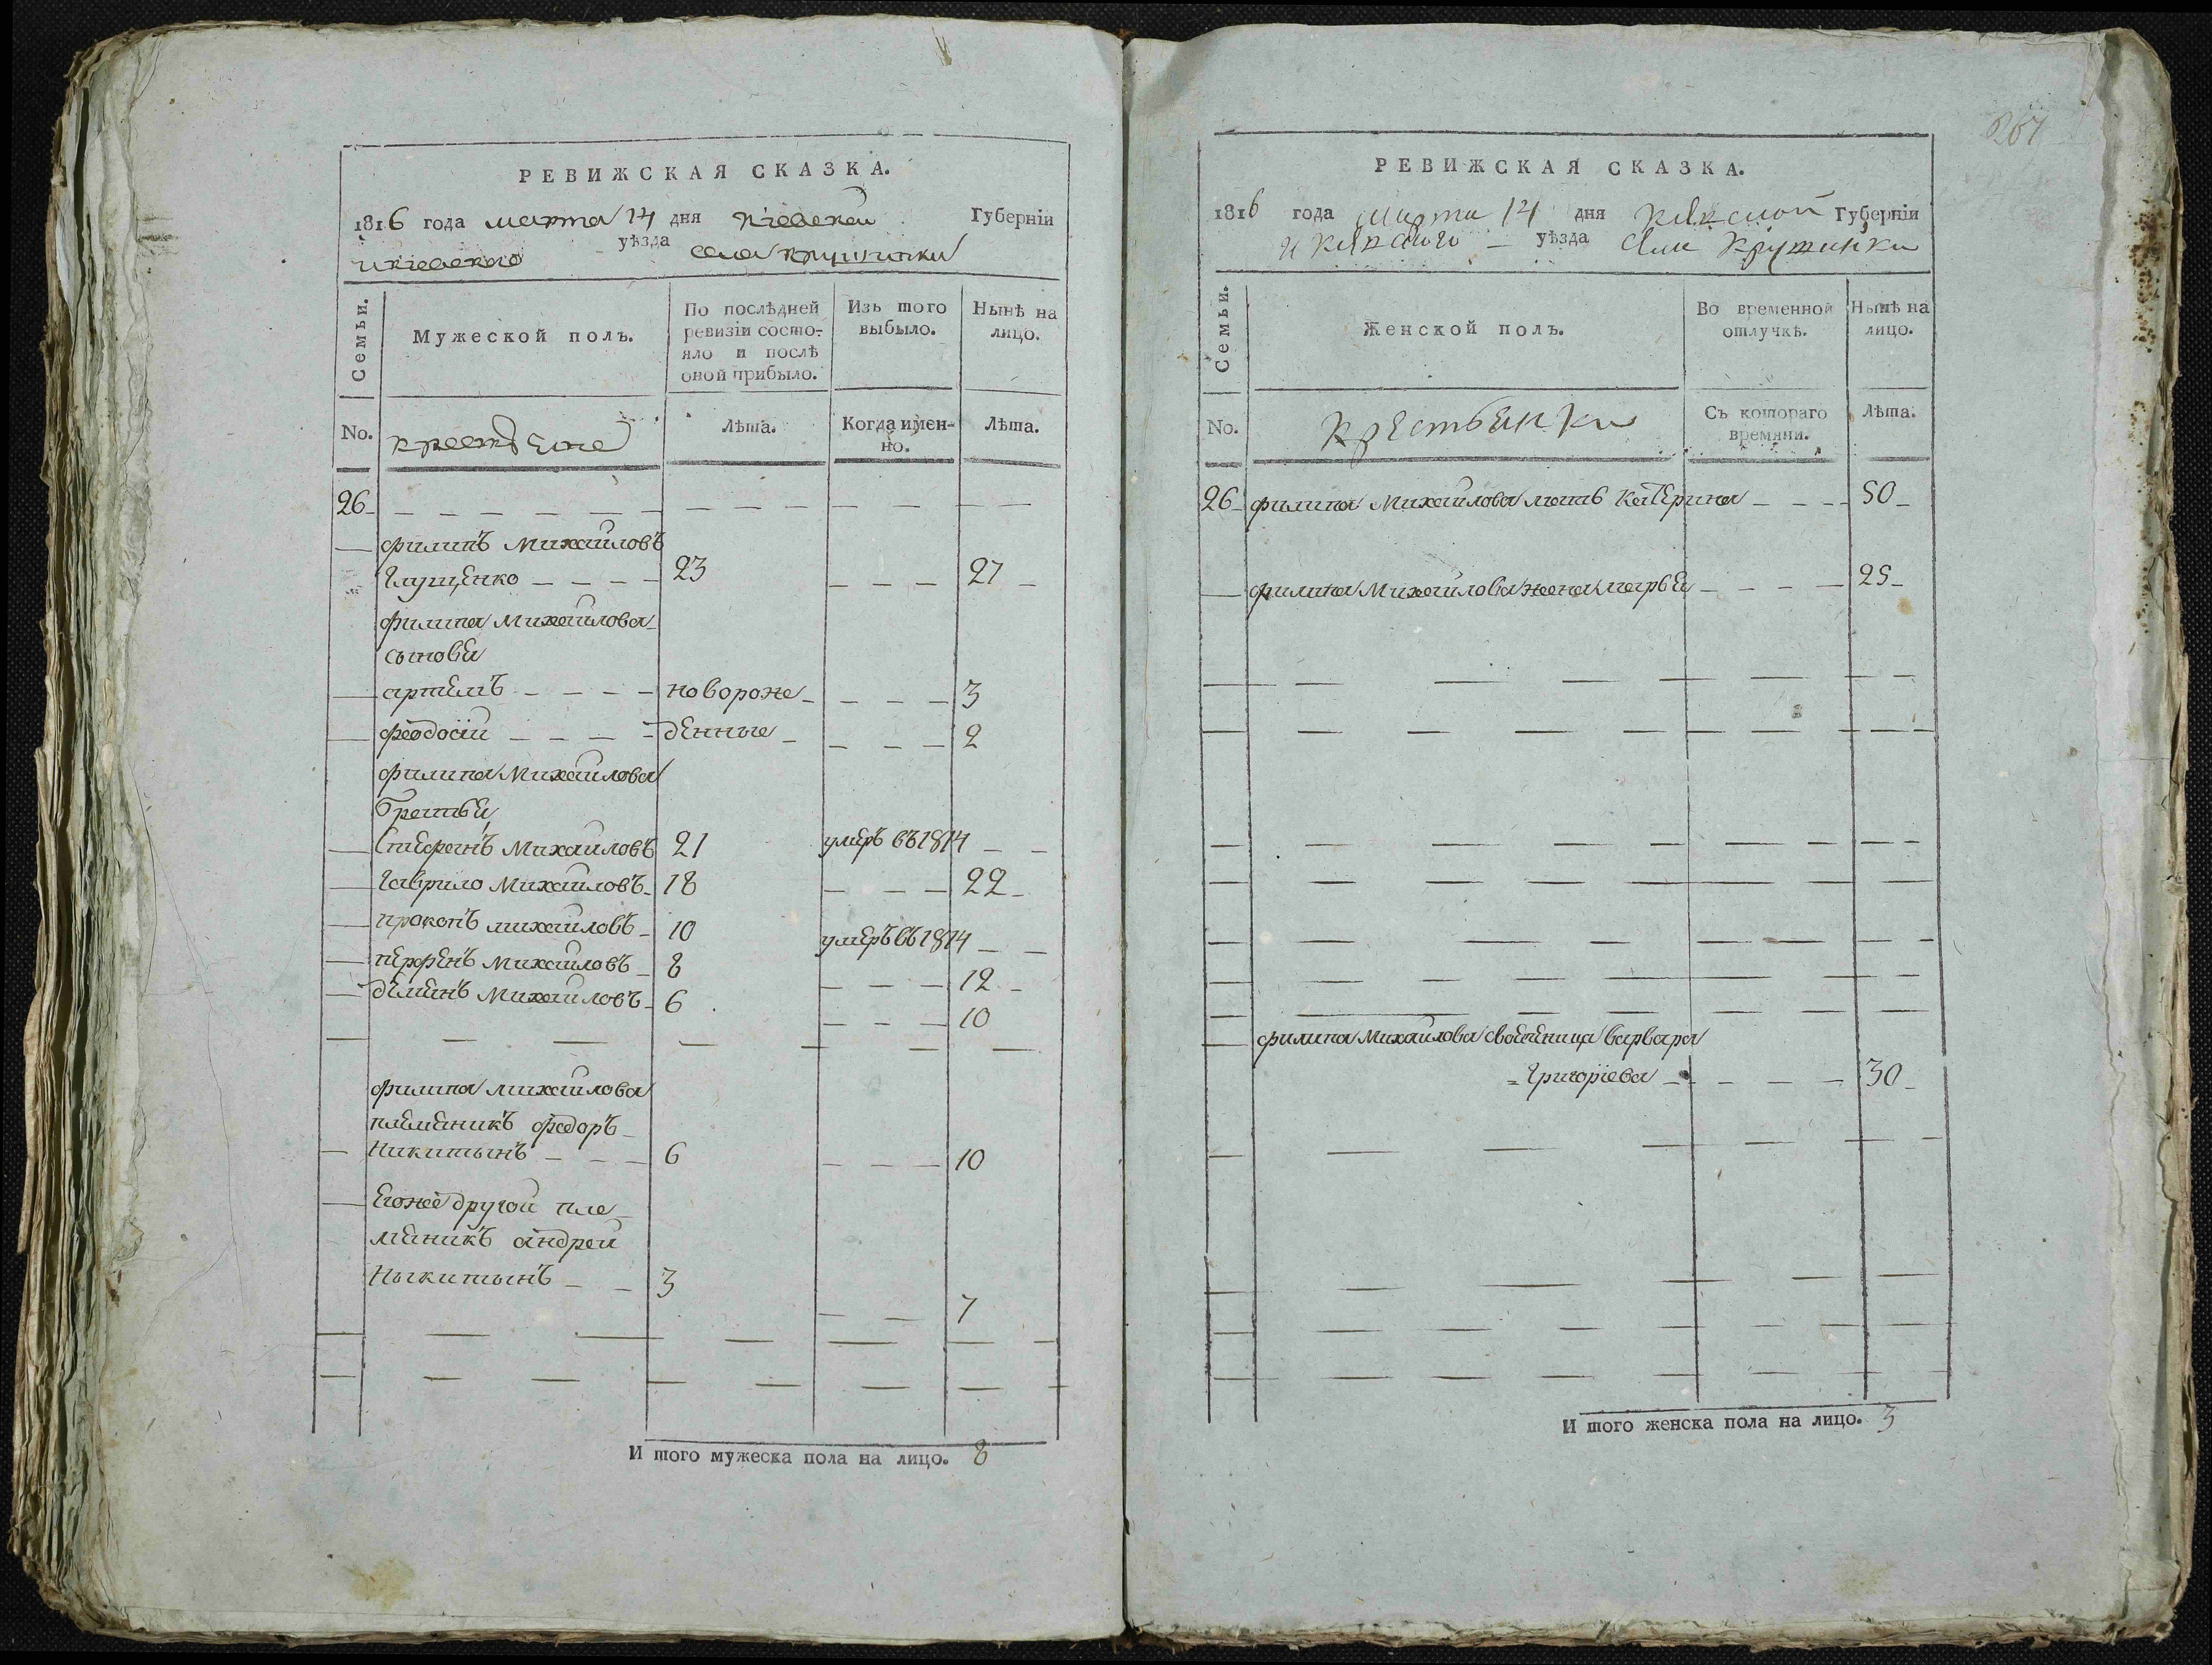 РЕВИЖСКАЯ СКАЗКА.
1816 года марта 14 дня Кіевской Губерніи
и Кіевского уѣзда села Крушинки
Семьи.
Мужеской полъ.
По послѣдней ревизіи состояло и послѣ оной прибыло.
Изъ того выбыло.
Нынѣ на лицо.
No.
крестьяне
Лѣта.
Когда именно.
Лѣта.
26
Филипъ Михайловъ
Глущенко 23 27
Филипа Михайлова
сыновья
артемъ новорож 3
феодосій денные 2
филипа Михайлова
братья
Стефанъ Михайловъ 21 умеръ въ 1814
Гаврило Михайловъ 18 22
прокопъ михайловъ 10 умеръ въ 1814
перфенъ Михайловъ 8 12
демянъ Михайловъ 6 10
филипа михайлова
племяникъ федоръ
Никитынъ 6 10
Егоже другой пле
мяникъ андрей
Ныкитынъ 3 7
И того мужеска пола на лицо. 8
267
РЕВИЖСКАЯ СКАЗКА.
1816 года Марта 14 дня Кіевской Губерніи
и Кіевского уѣзда Села Крушинки
Семьи.
Женской полъ.
Во временной отлучкѣ.
Нынѣ на лицо.
No.
Крестьянки
Съ котораго времяни.
Лѣта.
26 филипа Михайлова мать Катерина 50
филипа Михайлова жена марья 25
филипа Михайлова своячница варвара
Григоріева 30
И того женска пола на лицо. 3